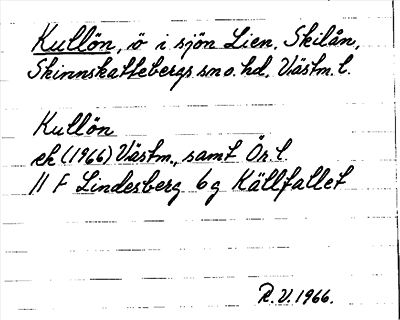 Kullön, ö i sjön Lien, Skilån,
Skinnskattebergs sn o. hd, Västm. l.
Kullön
ek (1966) Västm., samt Ör. l.
11 F Lindesberg 6g Källfallet
R.V. 1966.